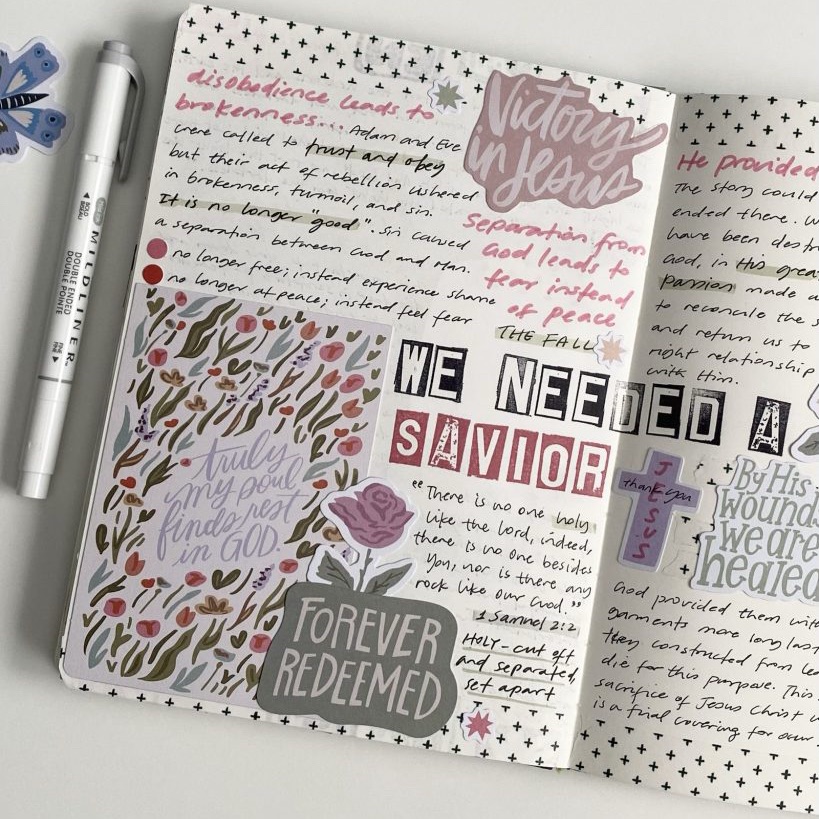 disobedience leads to
brokenness... Adam and Eve
were called to trust and obey
but their act of rebellion ushered
in brokenness, turmoil, and sin.
It is no longer "good". Sin caused
a separation between God and Man.
no longer free; instead experience shame
no longer at peace; instead feel fear
Victory
in Jesus
Separation from
God leads to
fear instead
of peace
THE FALL
WE NEEDED A
SAVIOR
truly
my soul
finds rest
in GOD.
FOREVER
REDEEMED
"There is no one holy
like the Lord, indeed,
there is no one besides
you, nor is there any
rock like our God"
1 Samuel 2:2
HOLY - cut off
and separated,
set apart
He provided
The story could
ended there. W
have been dest
God, in His grea
passion made a
to reconcile the s
and return us to
right relationship
with Him.
JESUS
thank you
By His
wounds
we are
healed
God provided them with
garments more long last
they constructed from lea
die for this purpose. This
sacrifice of Jesus Christ w
is a final covering for our
MILDLINER
DOUBLE ENDED
DOUBLE POINTE
BOLD
BISEAU
FINE